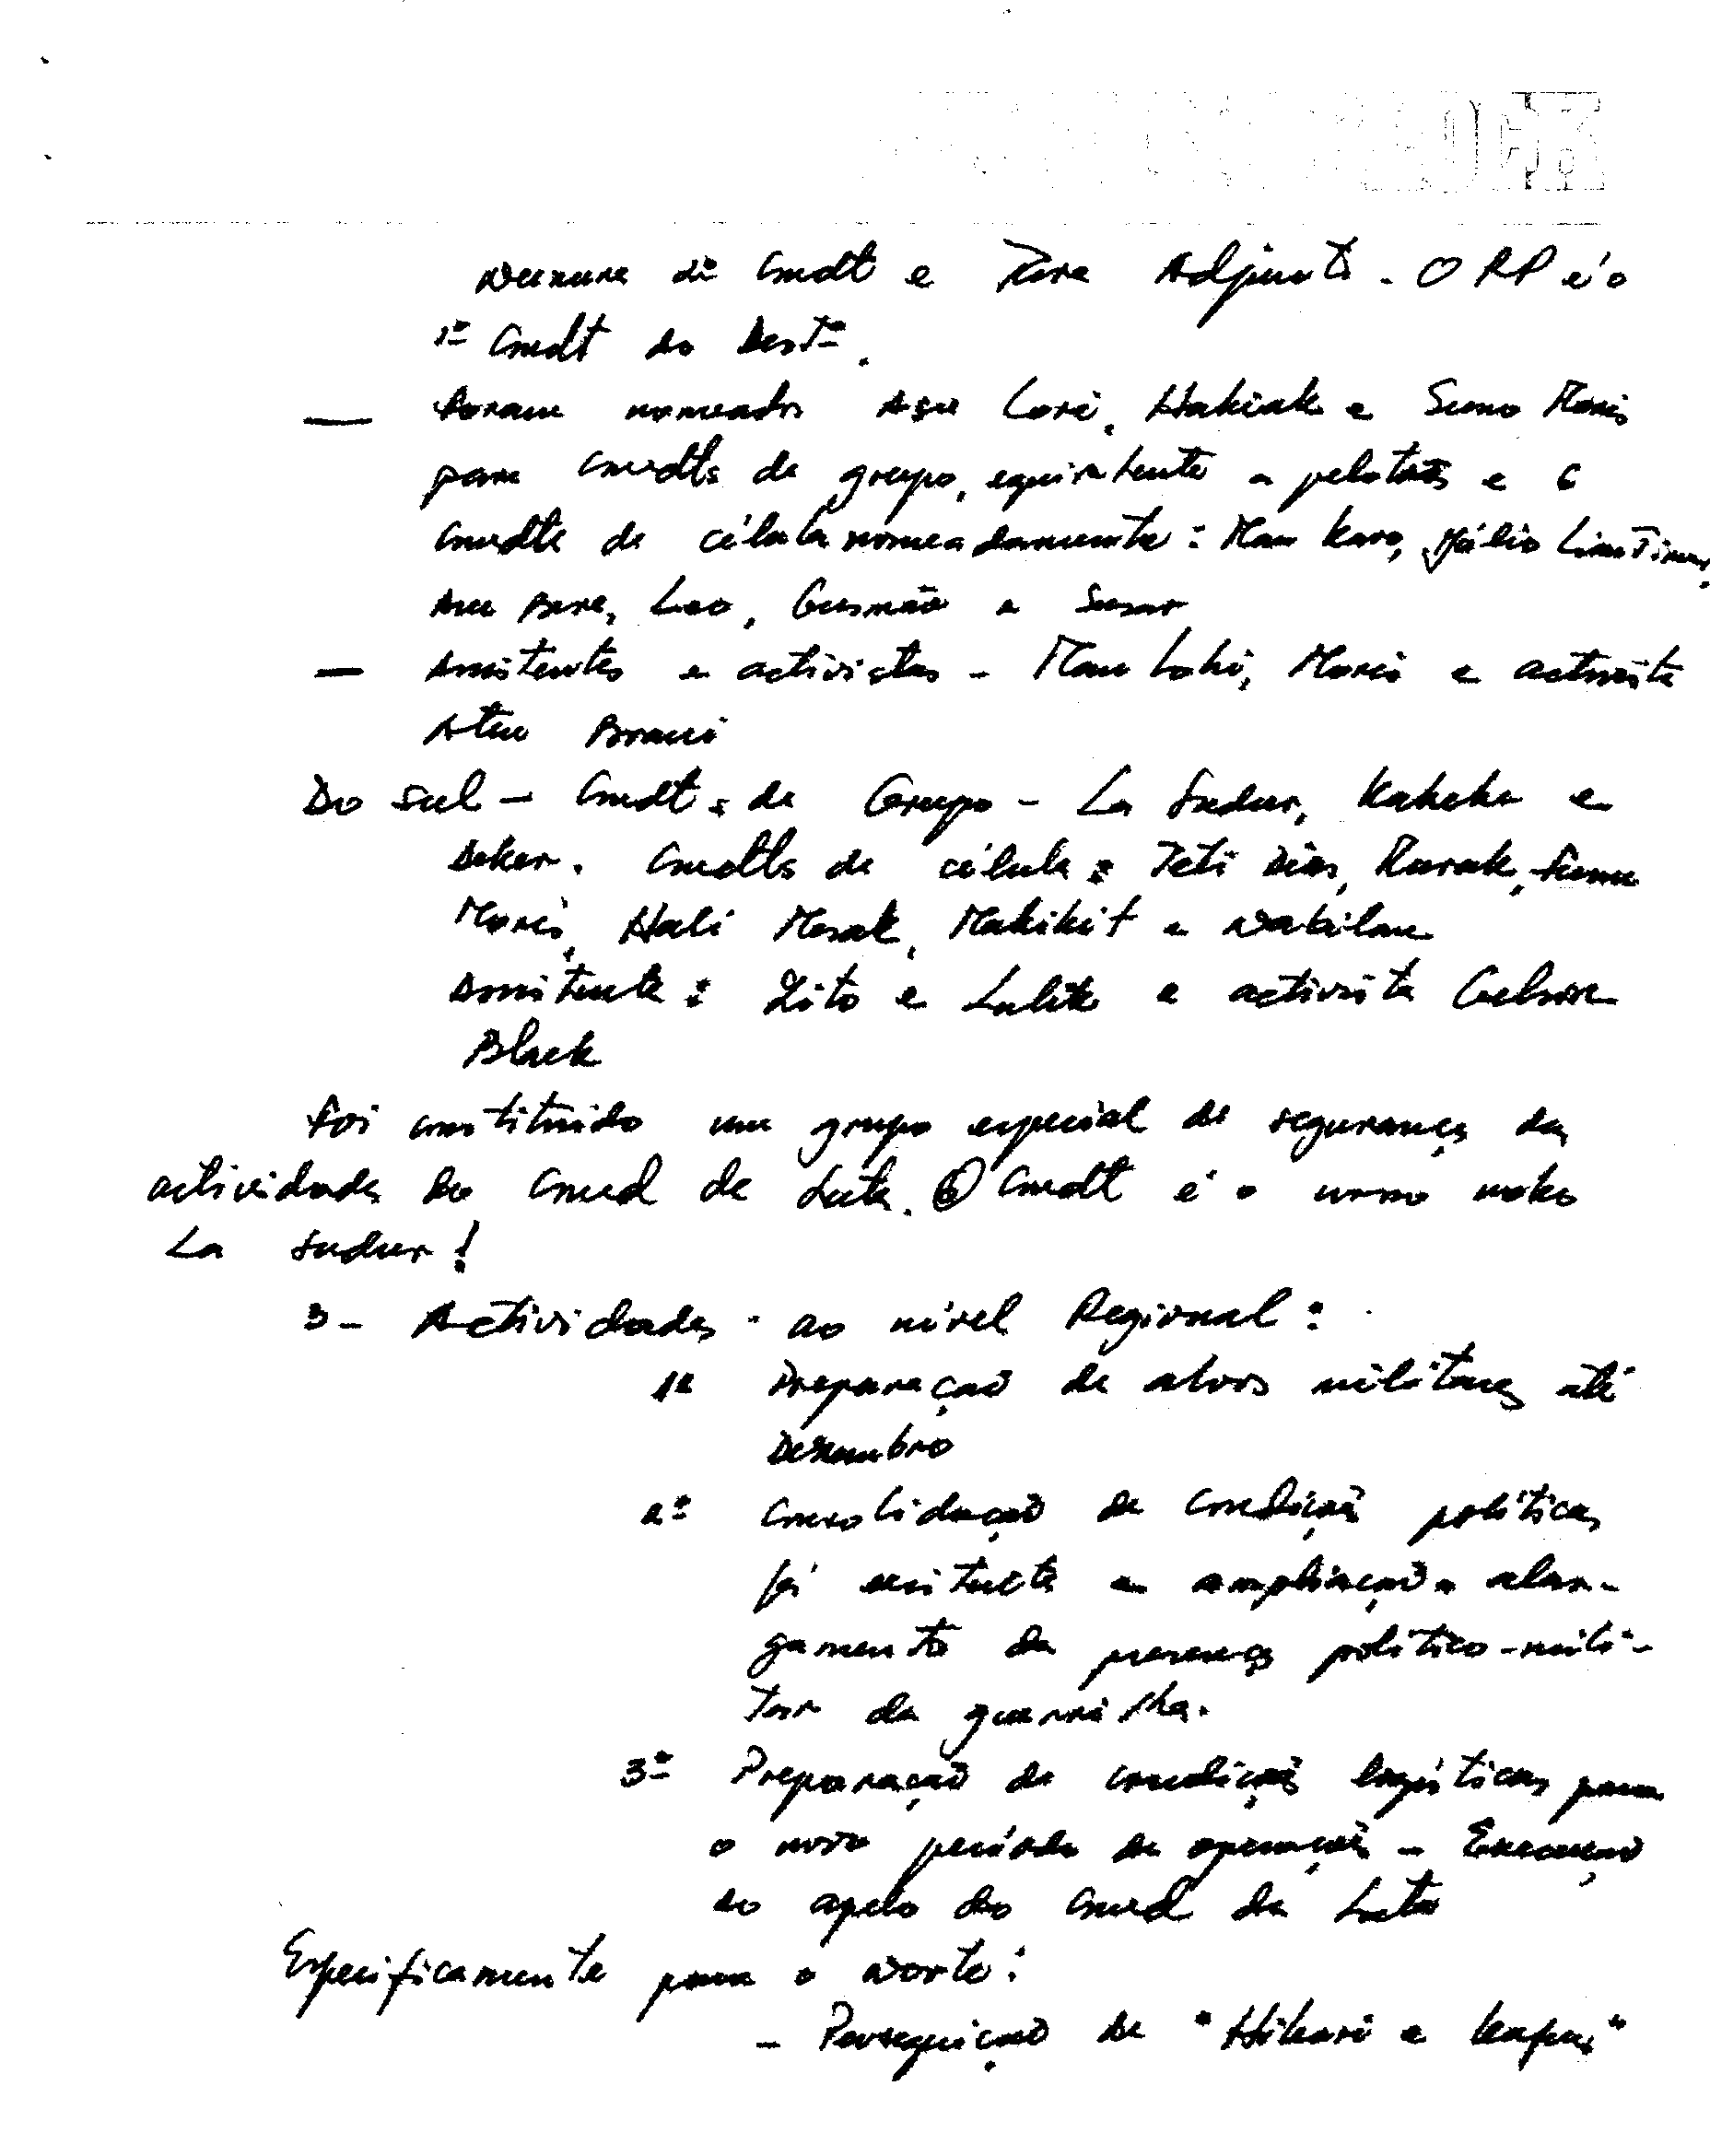 2º Cmdt e Adjunto. O RP é o
1º Cmdt do Dest.º.
— Foram nomeados Asu Lori, Hakiak e Sumo Moris
para Cmdts de grupo, equivalente a pelotões e 6
Cmdts de célula nomeadamente: Mau Karo, Hélio
Bere, Leo, Gusmão e
— Assistentes e activistas - Mau Loki, Moris e activista
Braci
Do sul - Cmdts de Grupo - La Sudur, Kakeke e
Deker. Cmdts de célula: Teti Dias, Rurak,
Moris, Hali Mesak, Makikit e Wabilau
Assistente: Zito e Lulik e activista
Black
Foi constituido um grupo especial de segurança das
actividades do Cmd da Luta. O Cmdt é o nosso
La Sudur!
3 - Actividades ao nível Regional:
1º Preparação de alvos militares até
Dezembro
2º Consolidação de condições políticas
já existente e ampliação e alar-
gamento da presença político-mili-
tar da guerrilha.
3º Preparação de condições logísticas para
o novo período de operações - Execução
do apelo do Cmd da Luta
Especificamente para o Norte:
- Perseguição de "